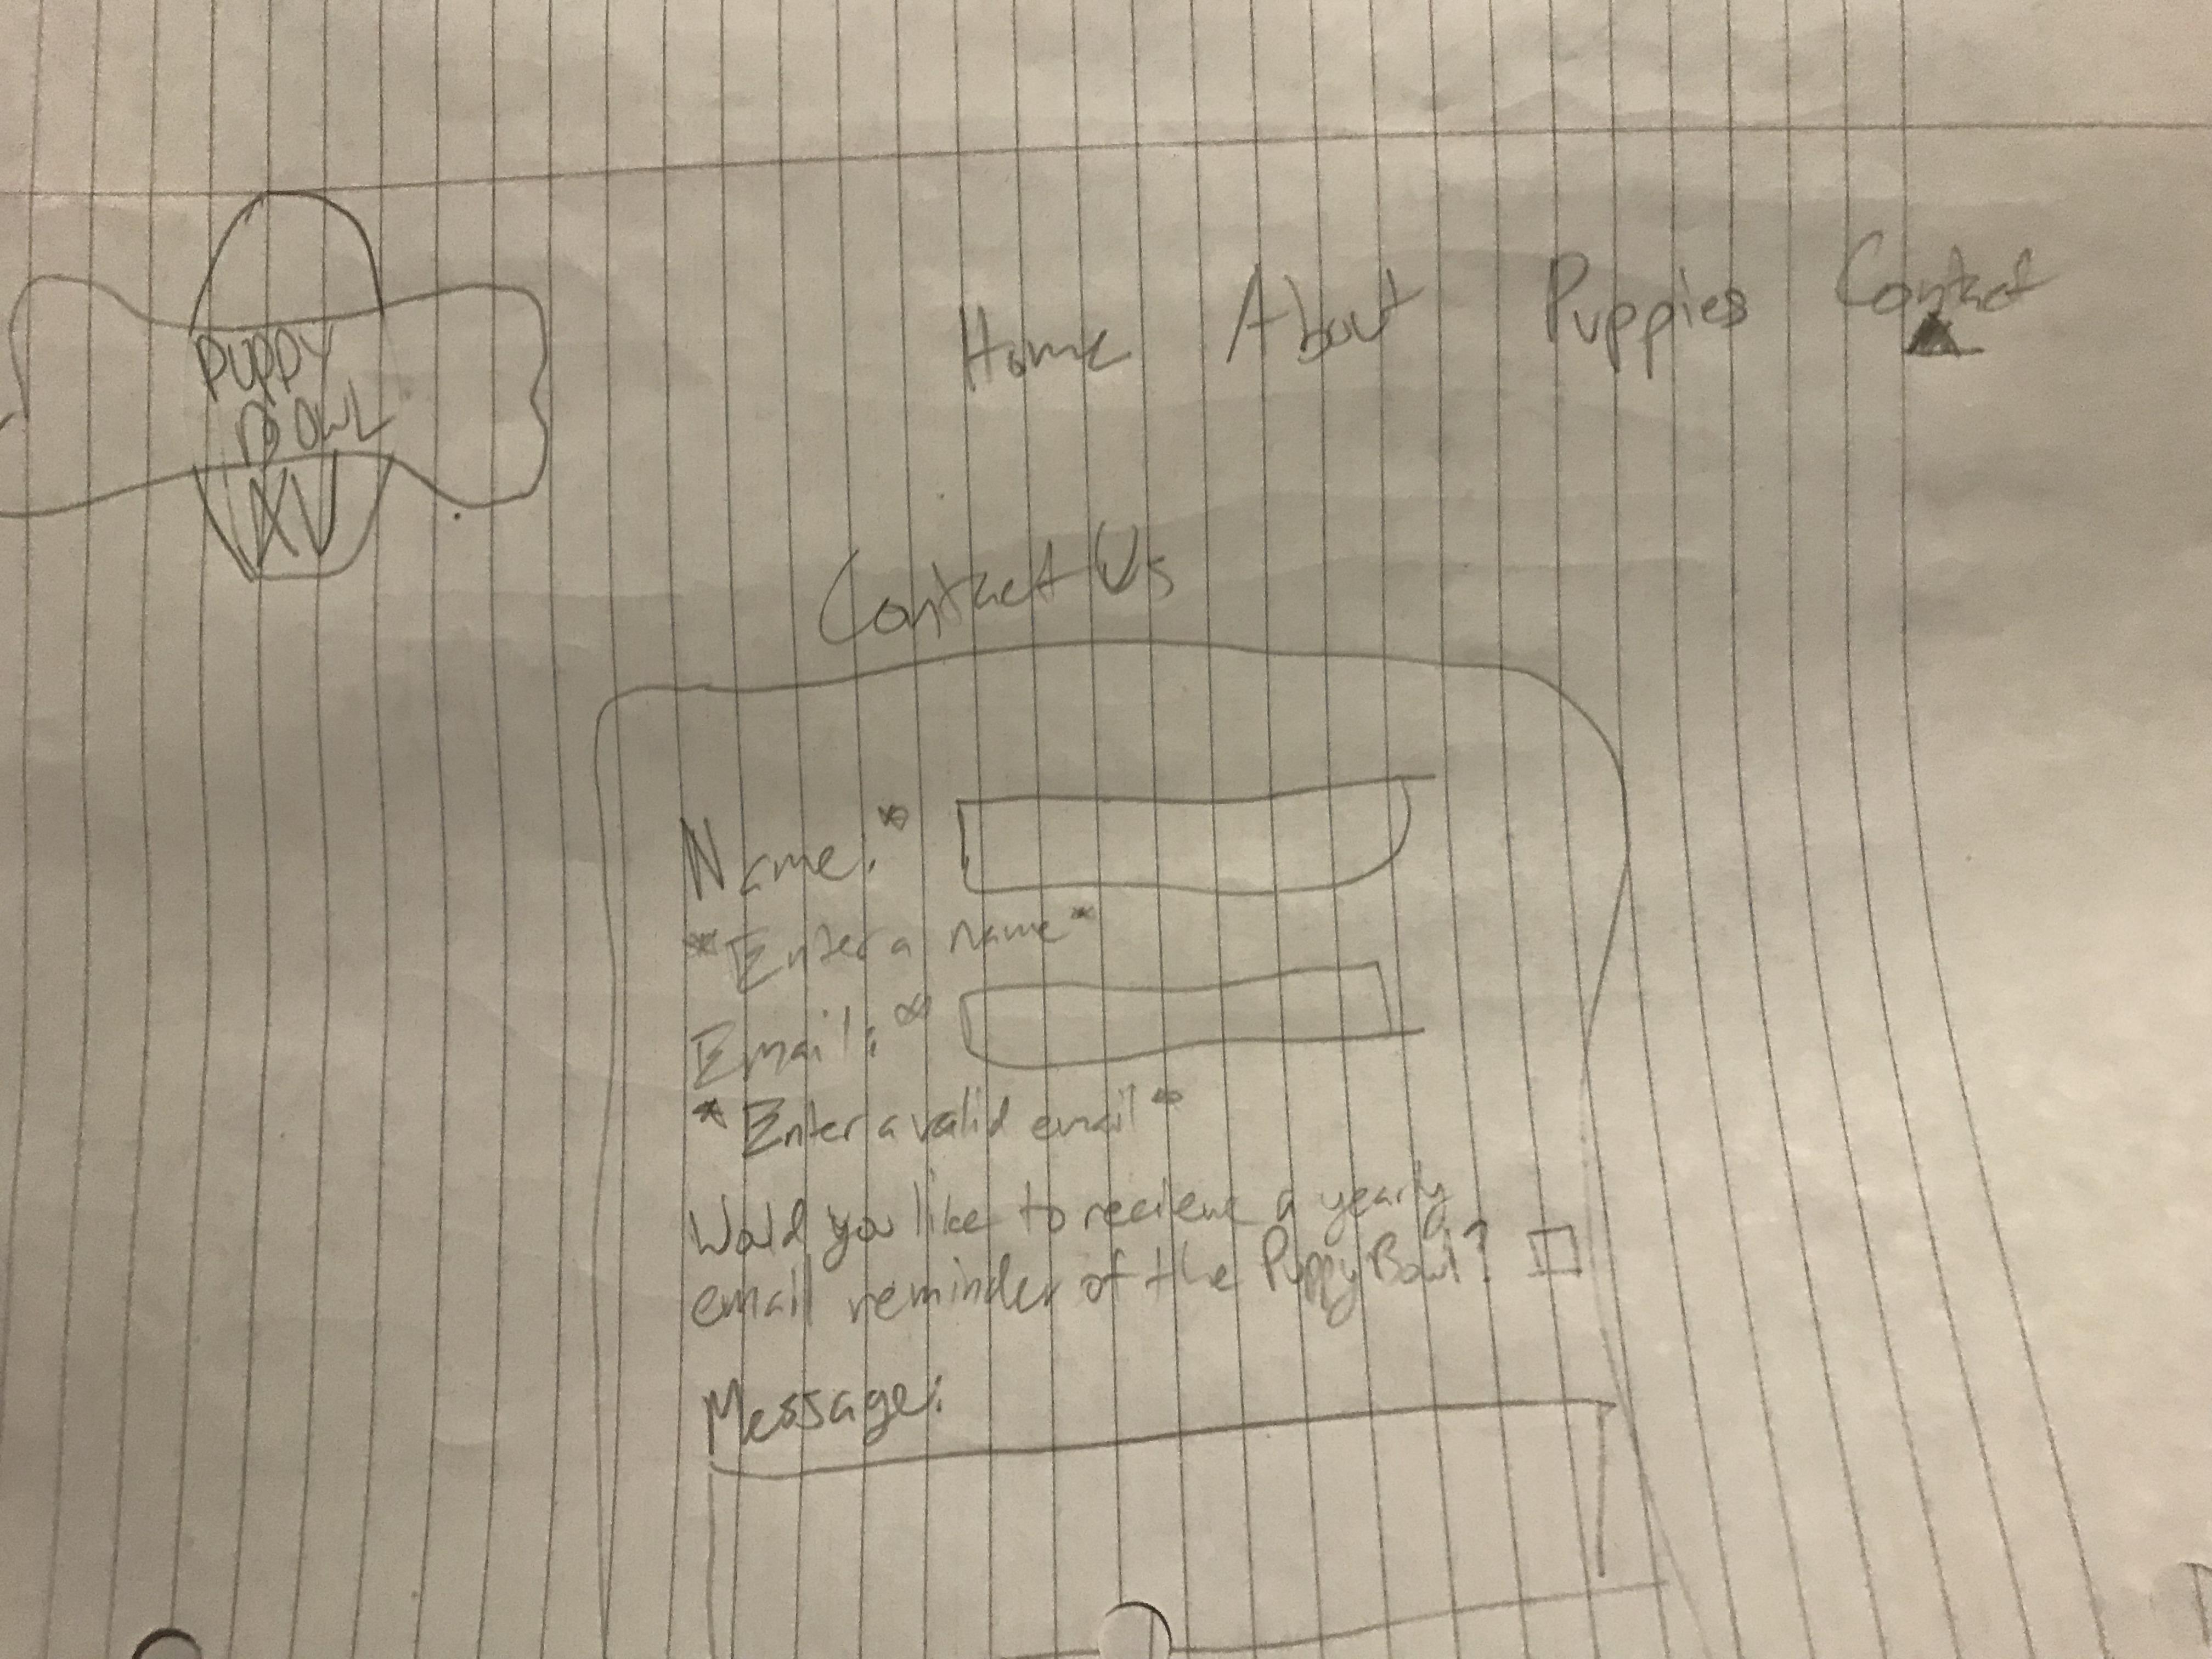 PUPPY
BOWL
XV
Home About Puppies Contact
Contact Us
Name:*
*Enter a name*
Email:*
*Enter a valid email*
Would you like to recieve a yearly
email reminder of the Puppy Bowl?
Message: